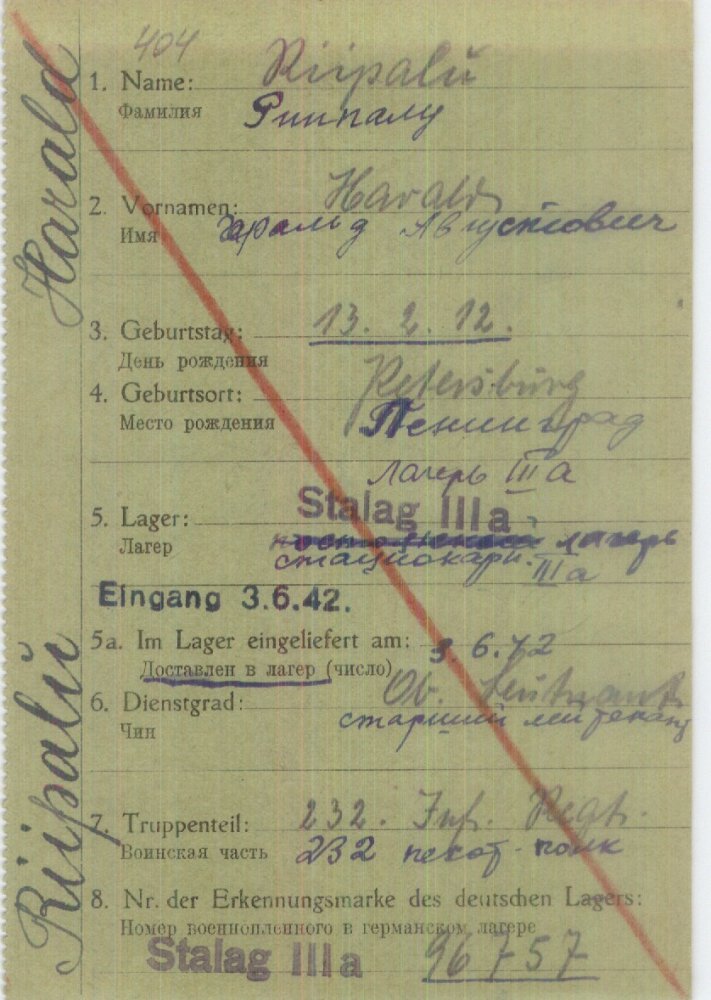 404
1. Name: Riipalú
Фамилия Риипалу
2. Vornamen: Harald
Имя Гаральд Августович
3. Geburtstag: 13. 2. 12.
День рождения
4. Geburtsort: Petersburg
Место рождения Ленинград
лагерь IIIa
5. Lager: Stalag IIIa
Лагер лагерь
стационарн. IIIa
Eingang 3.6.42.
5a. Im Lager eingeliefert am: 3.6.42
Доставлен в лагер (число)
6. Dienstgrad: Ob. Leutnant
Чин старший лейтенант
7. Truppenteil: 232. Inf. Regt.
Воинская часть 232 пехот. полк
8. Nr. der Erkennungsmarke des deutschen Lagers:
Номер военнопленного в германском лагере
Stalag IIIa 96757
Riipalú Harald